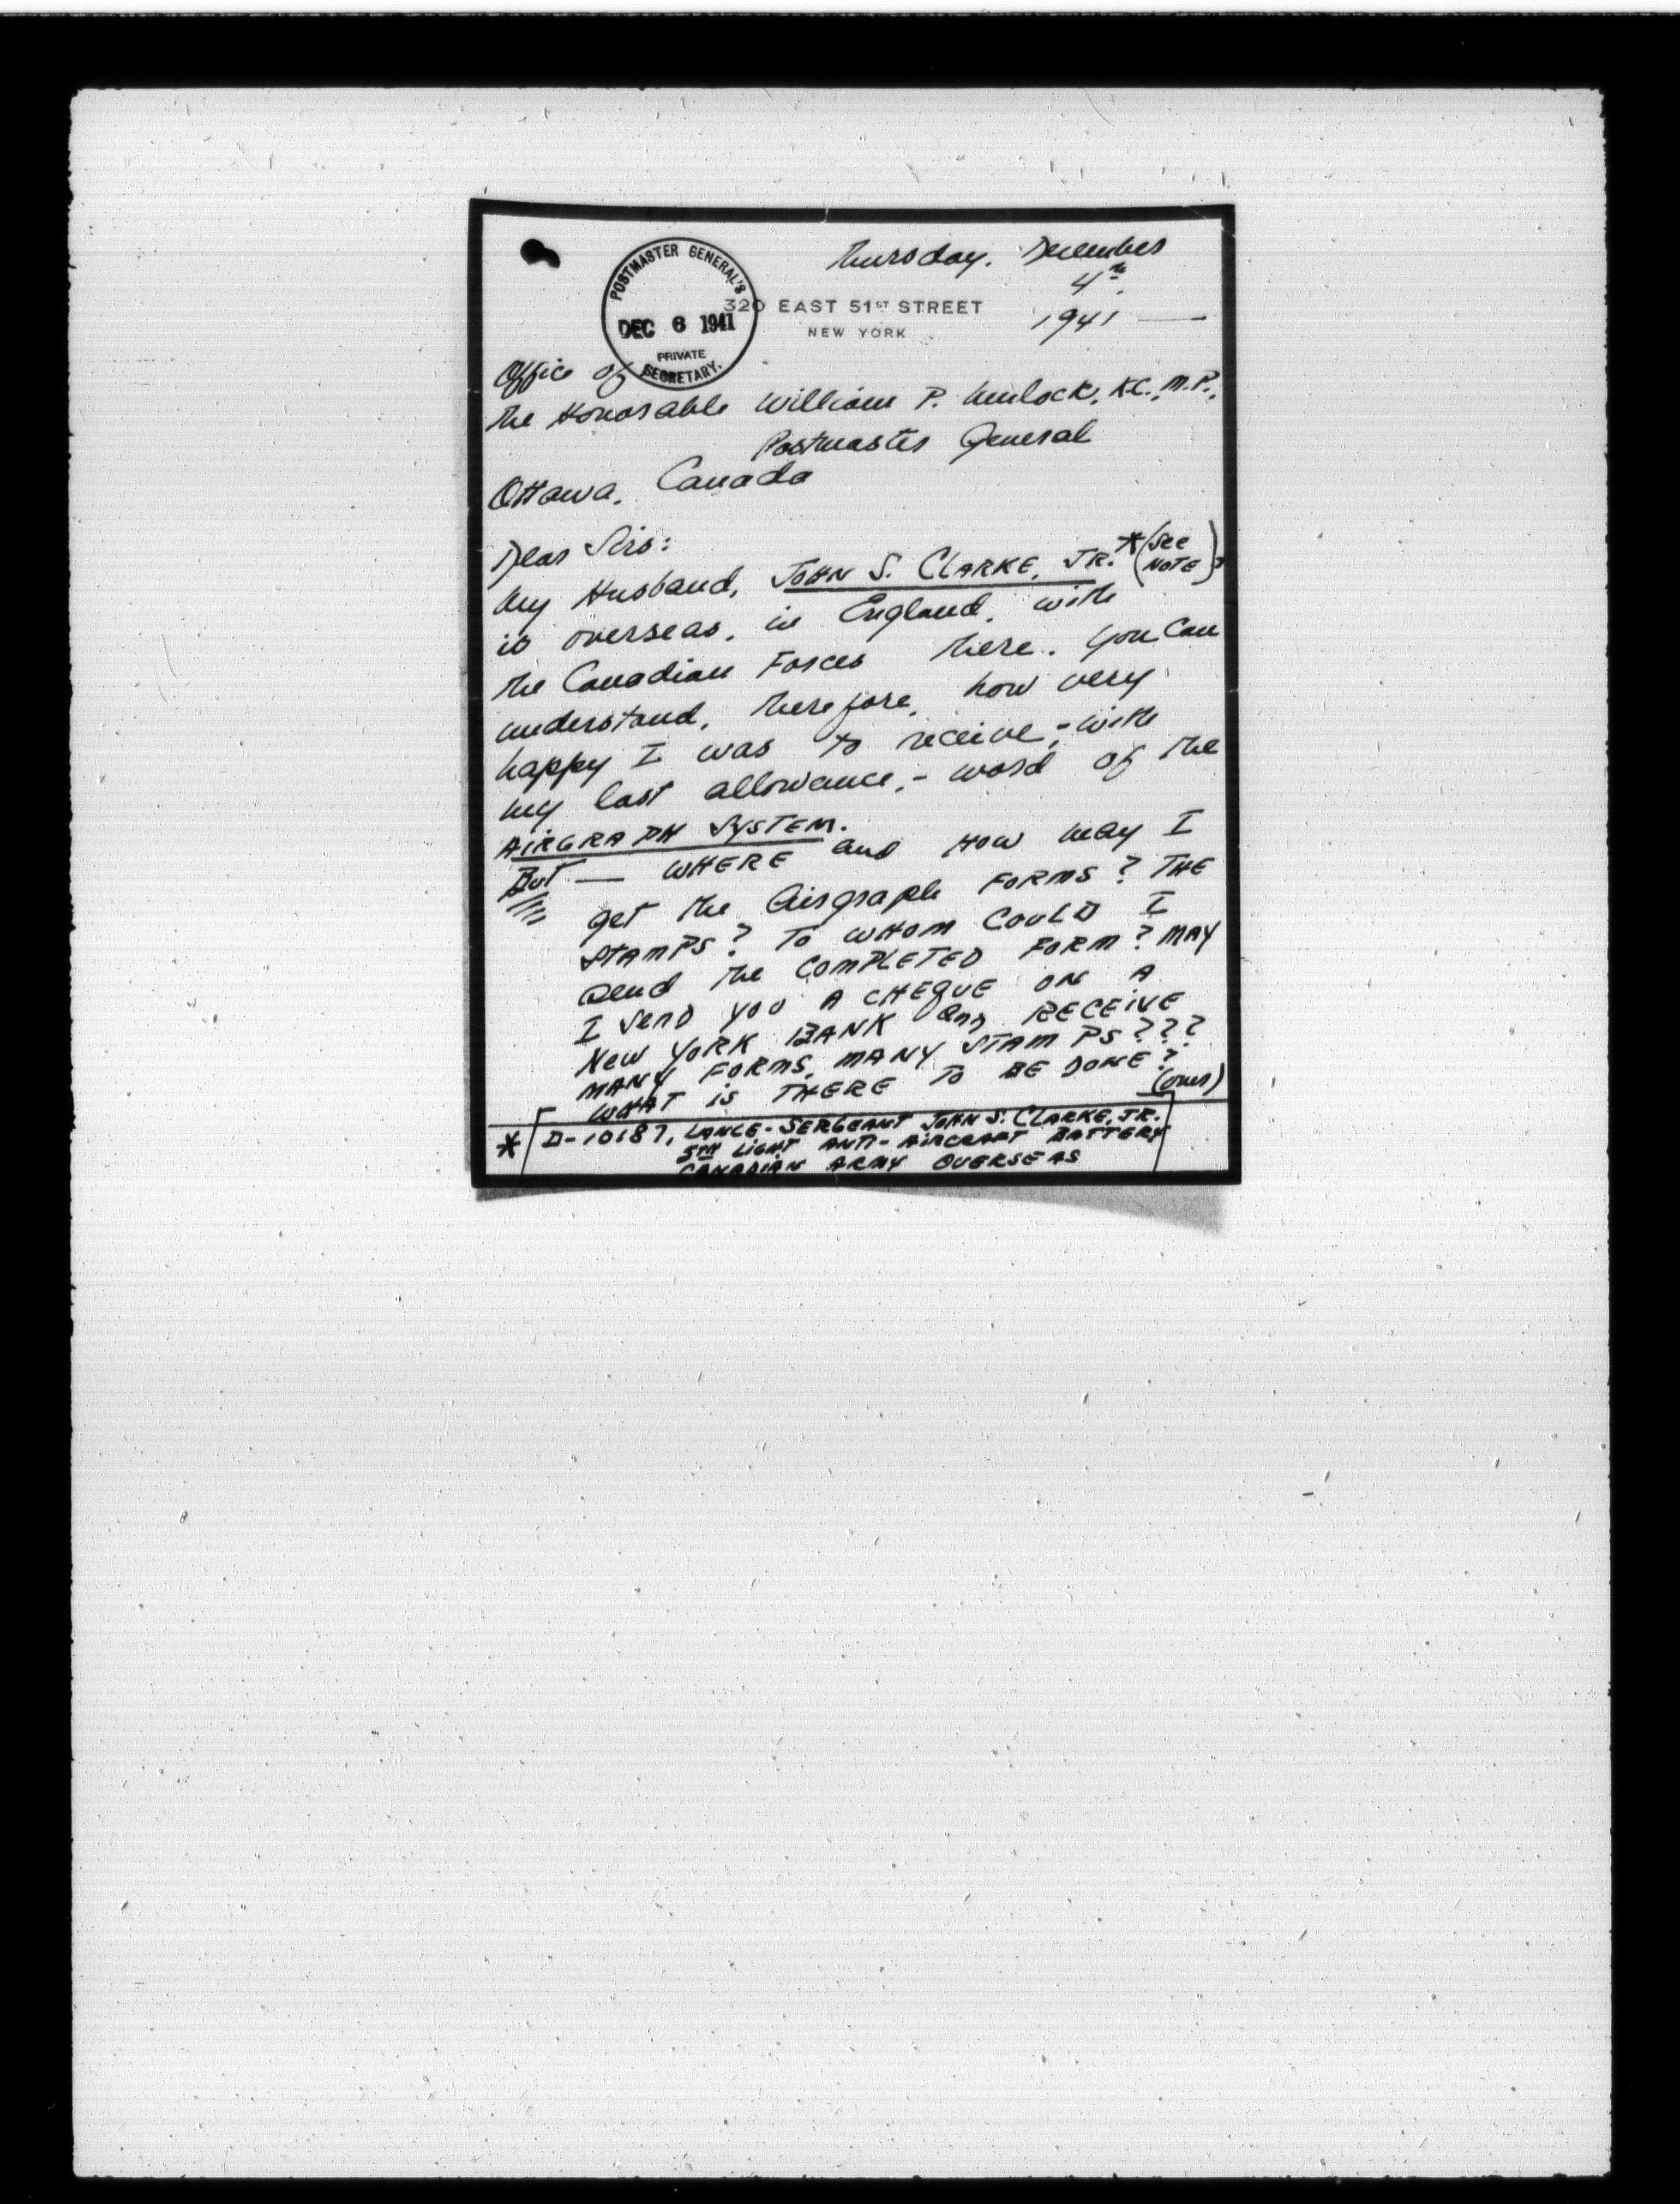 Thursday. December
4th.
1941 —
POSTMASTER GENERAL'S
DEC 6 1941
PRIVATE
SECRETARY.
320 EAST 51ST STREET
NEW YORK
Office of
The Honorable William P. Mulock, K.C., M.P.,
Postmaster General
Ottawa, Canada
Dear Sirs:
My Husband, JOHN S. CLARKE, JR. * (See NOTE),
is overseas, in England, with
the Canadian Forces there. You can
understand, therefore, how very
happy I was to receive, - with
my last allowance, - word of the
AIRGRAPH SYSTEM.
But — WHERE and HOW may I
get the Airgraph FORMS? THE
STAMPS? TO WHOM COULD I
send the COMPLETED FORM? MAY
I SEND YOU A CHEQUE ON A
NEW YORK BANK and RECEIVE
MANY FORMS, MANY STAMPS???
WHAT IS THERE TO BE DONE?
(over)
* [D-10187, LANCE-SERGEANT JOHN S. CLARKE, JR.
5TH LIGHT ANTI-AIRCRAFT BATTERY
CANADIAN ARMY OVERSEAS]